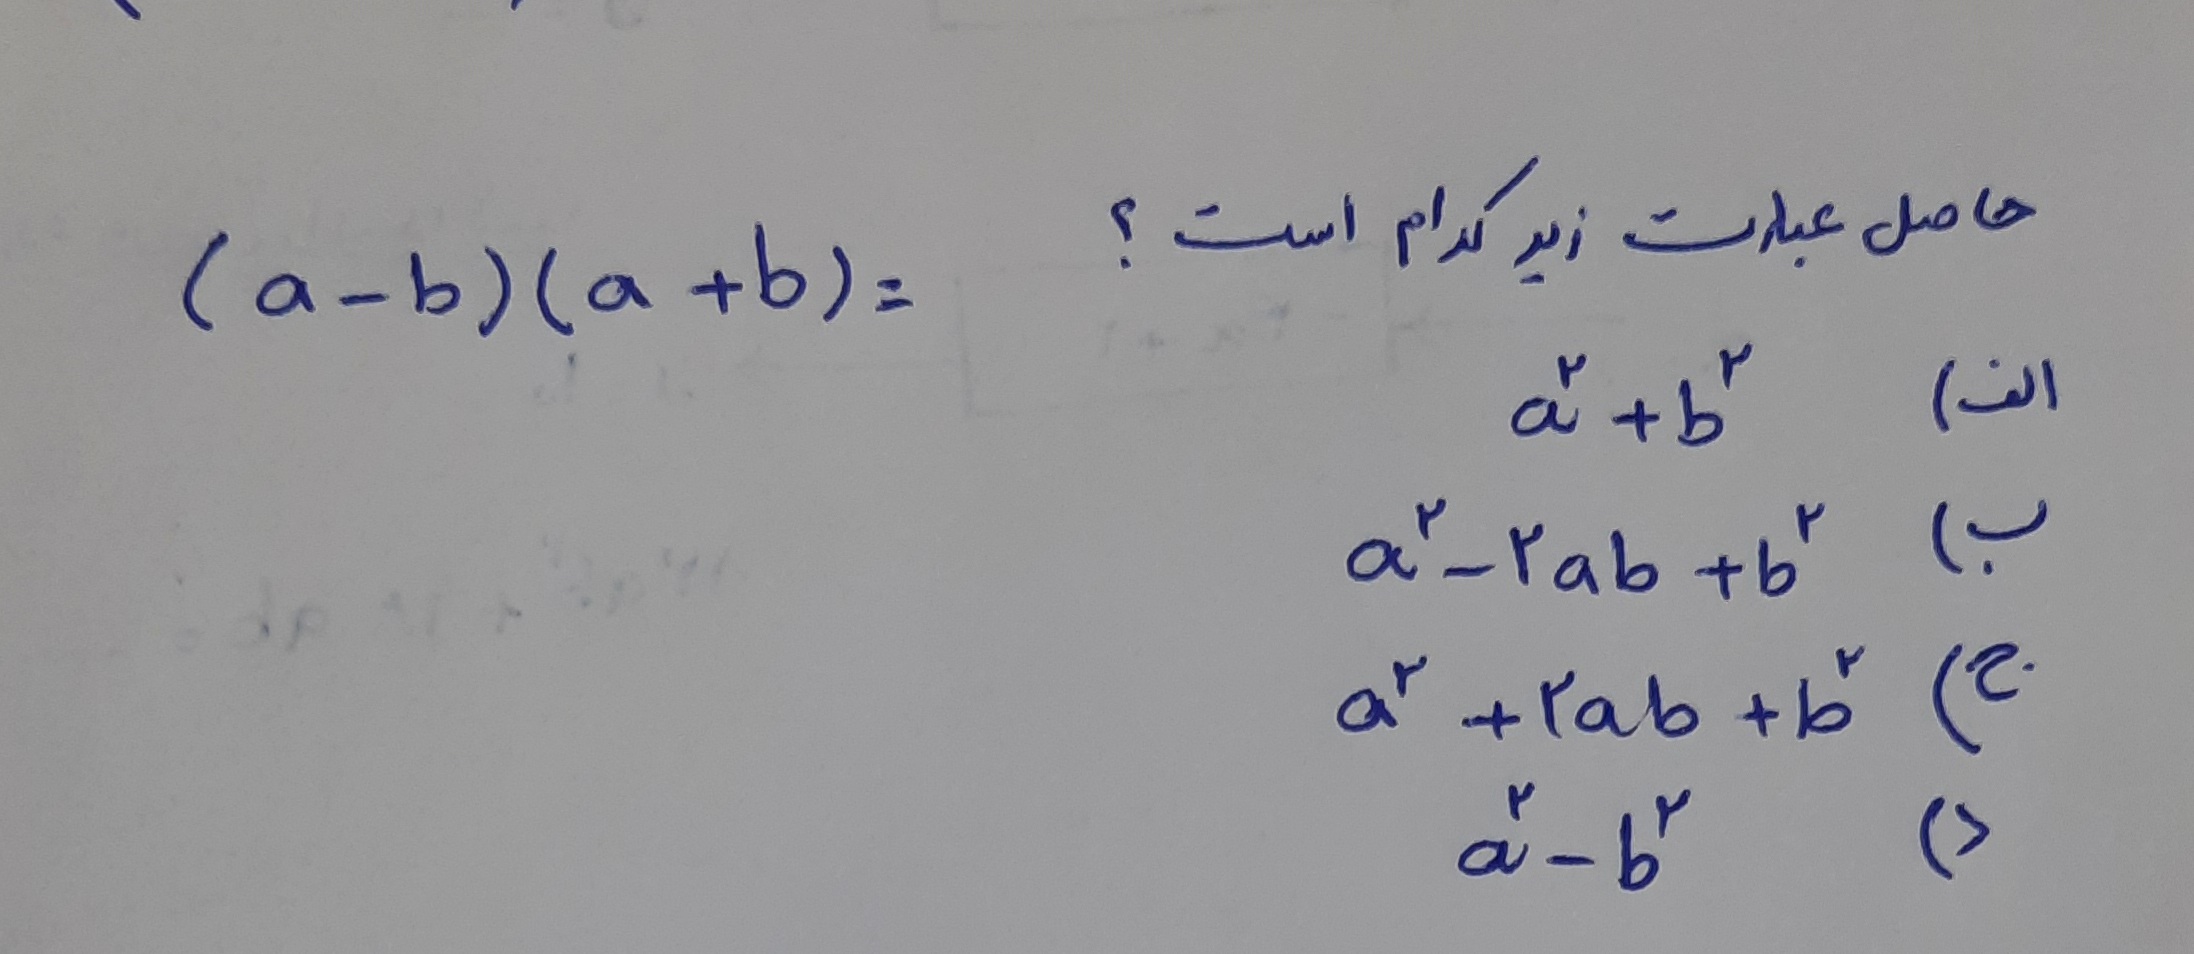 حاصل عبارت زیر کدام است ؟
(a-b)(a+b)=
الف) a²+b²
ب) a²-۲ab+b²
ج) a²+۲ab+b²
د) a²-b²